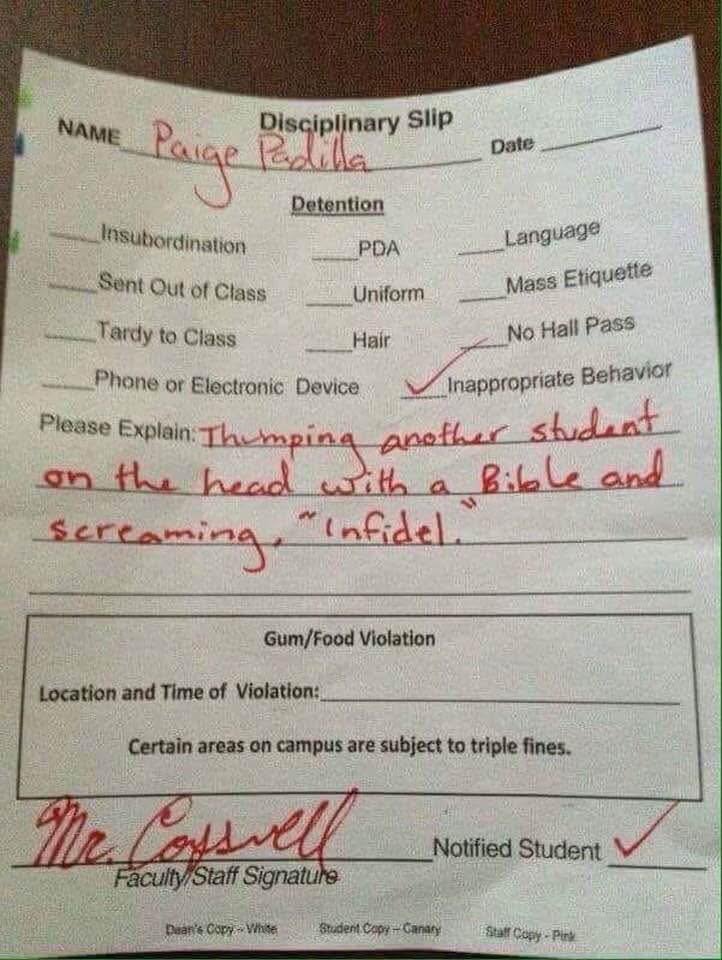 Disciplinary Slip
NAME Paige Padilla Date
Detention
Insubordination PDA Language
Sent Out of Class Uniform Mass Etiquette
Tardy to Class Hair No Hall Pass
Phone or Electronic Device ✓ Inappropriate Behavior
Please Explain: Thumping another student
on the head with a Bible and
screaming, "Infidel."
Gum/Food Violation
Location and Time of Violation:
Certain areas on campus are subject to triple fines.
Mr. Notified Student ✓
Faculty/Staff Signature
Dean's Copy - White Student Copy - Canary Staff Copy - Pink